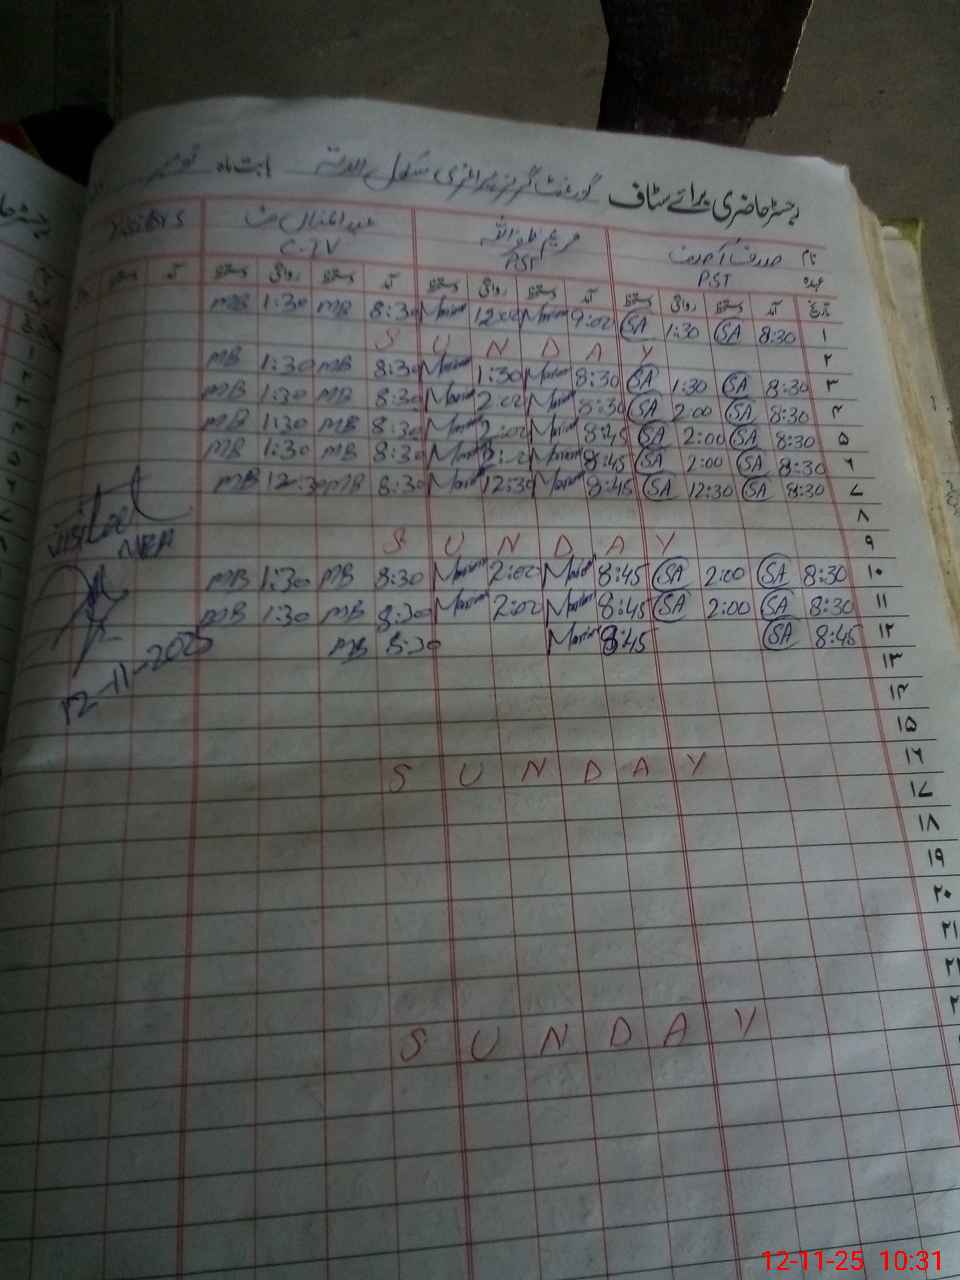 رجسٹر حاضری برائے سٹاف گورنمنٹ گرلز پرائمری سکول بابت ماہ نومبر
نام صدف آصف مریم عبدالمنان Visitors
عہدہ PST PST C.IV
تاریخ آمد دستخط روانگی دستخط آمد دستخط روانگی دستخط آمد دستخط روانگی دستخط آمد دستخط
۱ 8:30 SA 1:30 SA 9:00 Mariam 12:00 Mariam 8:30 MB 1:30 MB
۲ S U N D A Y
۳ 8:30 SA 1:30 SA 8:30 Mariam 1:30 Mariam 8:30 MB 1:30 MB
۴ 8:30 SA 2:00 SA 8:30 Mariam 2:00 Mariam 8:30 MB 1:30 MB
۵ 8:30 SA 2:00 SA 8:45 Mariam 2:00 Mariam 8:30 MB 1:30 MB
۶ 8:30 SA 2:00 SA 8:45 Mariam 2:00 Mariam 8:30 MB 1:30 MB
۷ 8:30 SA 12:30 SA 8:45 Mariam 12:30 Mariam 8:30 MB 12:30 MB
۸
۹ S U N D A Y
۱۰ 8:30 SA 2:00 SA 8:45 Mariam 2:00 Mariam 8:30 MB 1:30 MB
۱۱ 8:30 SA 2:00 SA 8:45 Mariam 2:00 Mariam 8:30 MB 1:30 MB
۱۲ 8:45 SA 8:45 Mariam 8:30 MB
۱۳
۱۴
۱۵
۱۶ S U N D A Y
۱۷
۱۸
۱۹
۲۰
۲۱
۲۲
S U N D A Y
Visited
12-11-2025
12-11-25 10:31